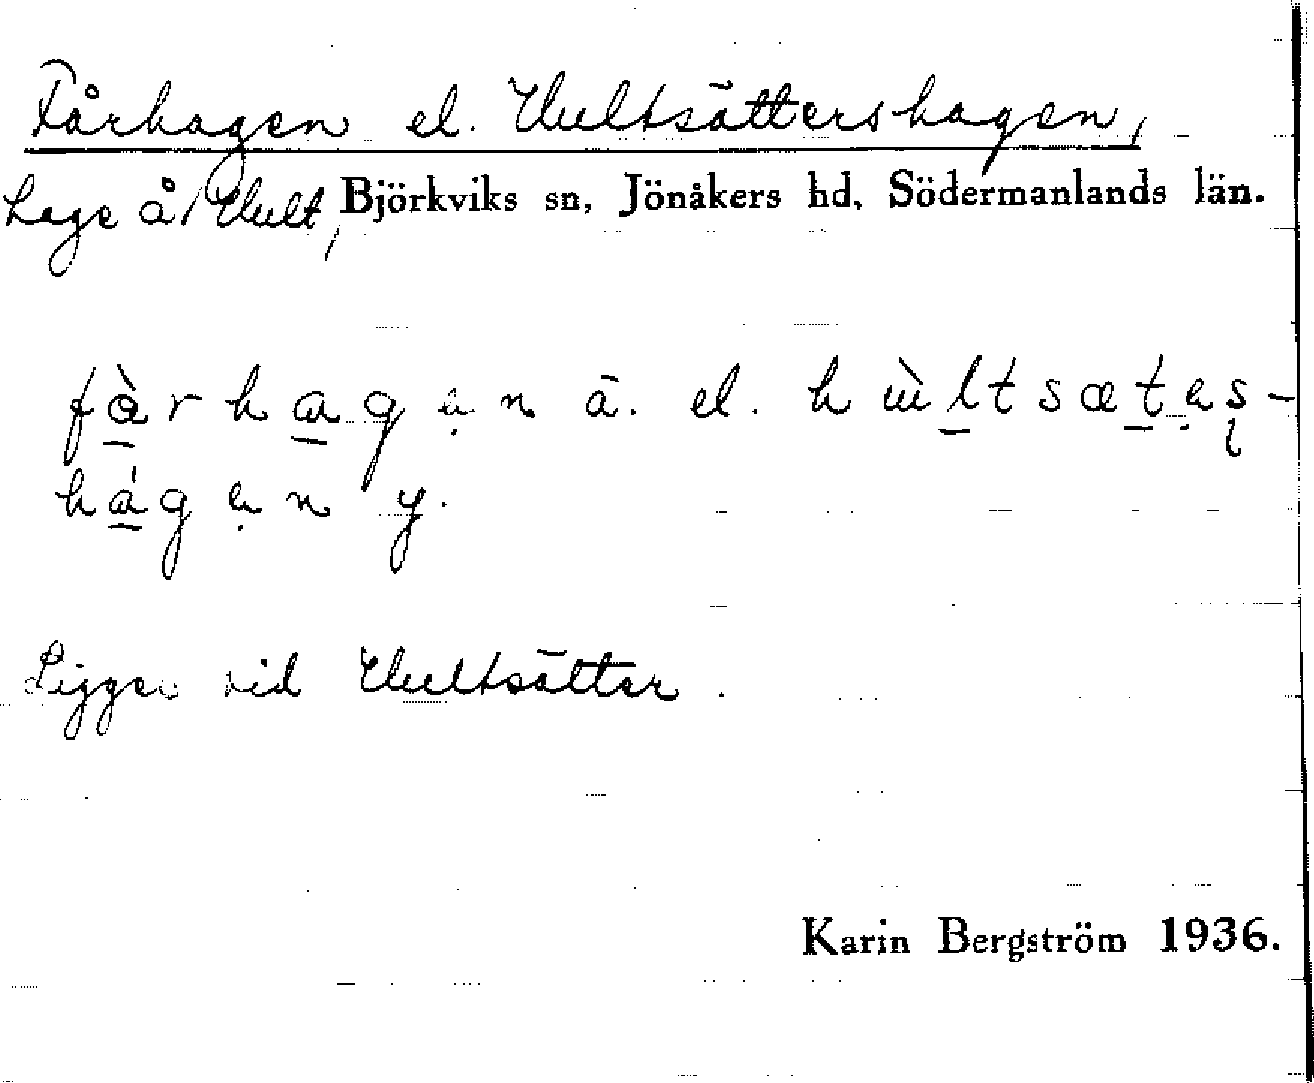 Fårhagen el. Hultsättershagen,
hage å Hult, Björkviks sn, Jönåkers hd, Södermanlands län.
fårhagan ä. el. hultsætas-
hagan y.
Ligger vid Hultsätter.
Karin Bergström 1936.